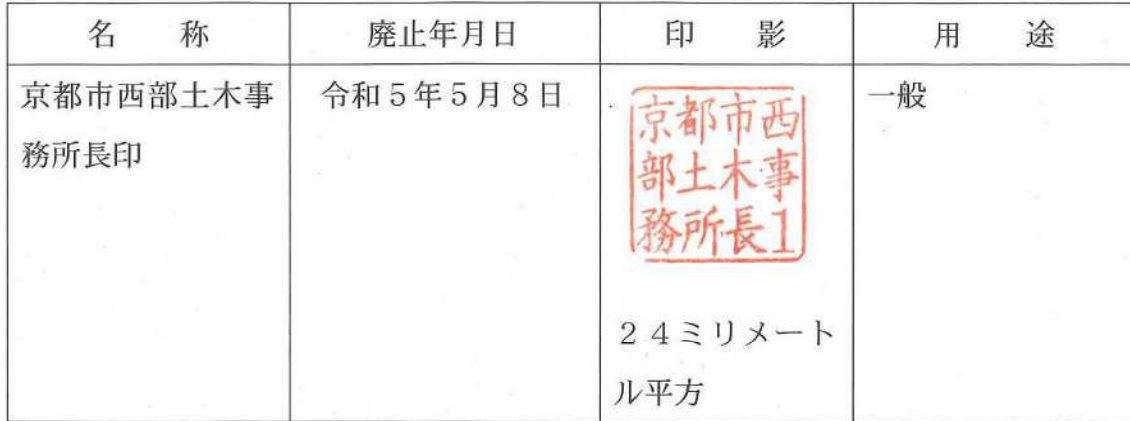 名　　称
廃止年月日
印　　影
用　　途
京都市西部土木事
務所長印
令和５年５月８日
京都市西
部土木事
務所長1
２４ミリメート
ル平方
一般